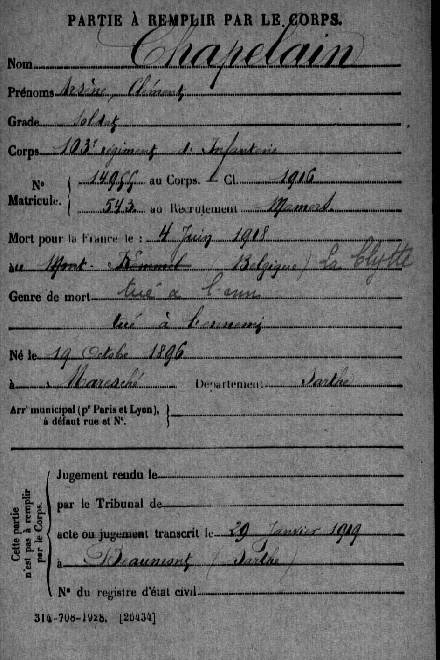 PARTIE À REMPLIR PAR LE CORPS.
Nom Chapelain
Prénoms Arsène, Clément
Grade Soldat
Corps 103e régiment d'Infanterie
N° Matricule. { 14966 au Corps. — Cl. 1916
543 au Recrutement Mamers
Mort pour la France le : 4 Juin 1918
au Mont-Kemmel (Belgique) La Clytte
Genre de mort tué à l'enn
tué à l'ennemi
Né le 19 Octobre 1896
à Maresché Département Sarthe
Arr' municipal (p' Paris et Lyon),
à défaut rue et N°.
Cette partie n'est pas à remplir par le Corps.
Jugement rendu le
par le Tribunal de
acte ou jugement transcrit le 29 Janvier 1919
à Beaumont (Sarthe)
N° du registre d'état civil
314-708-1928. [26434]